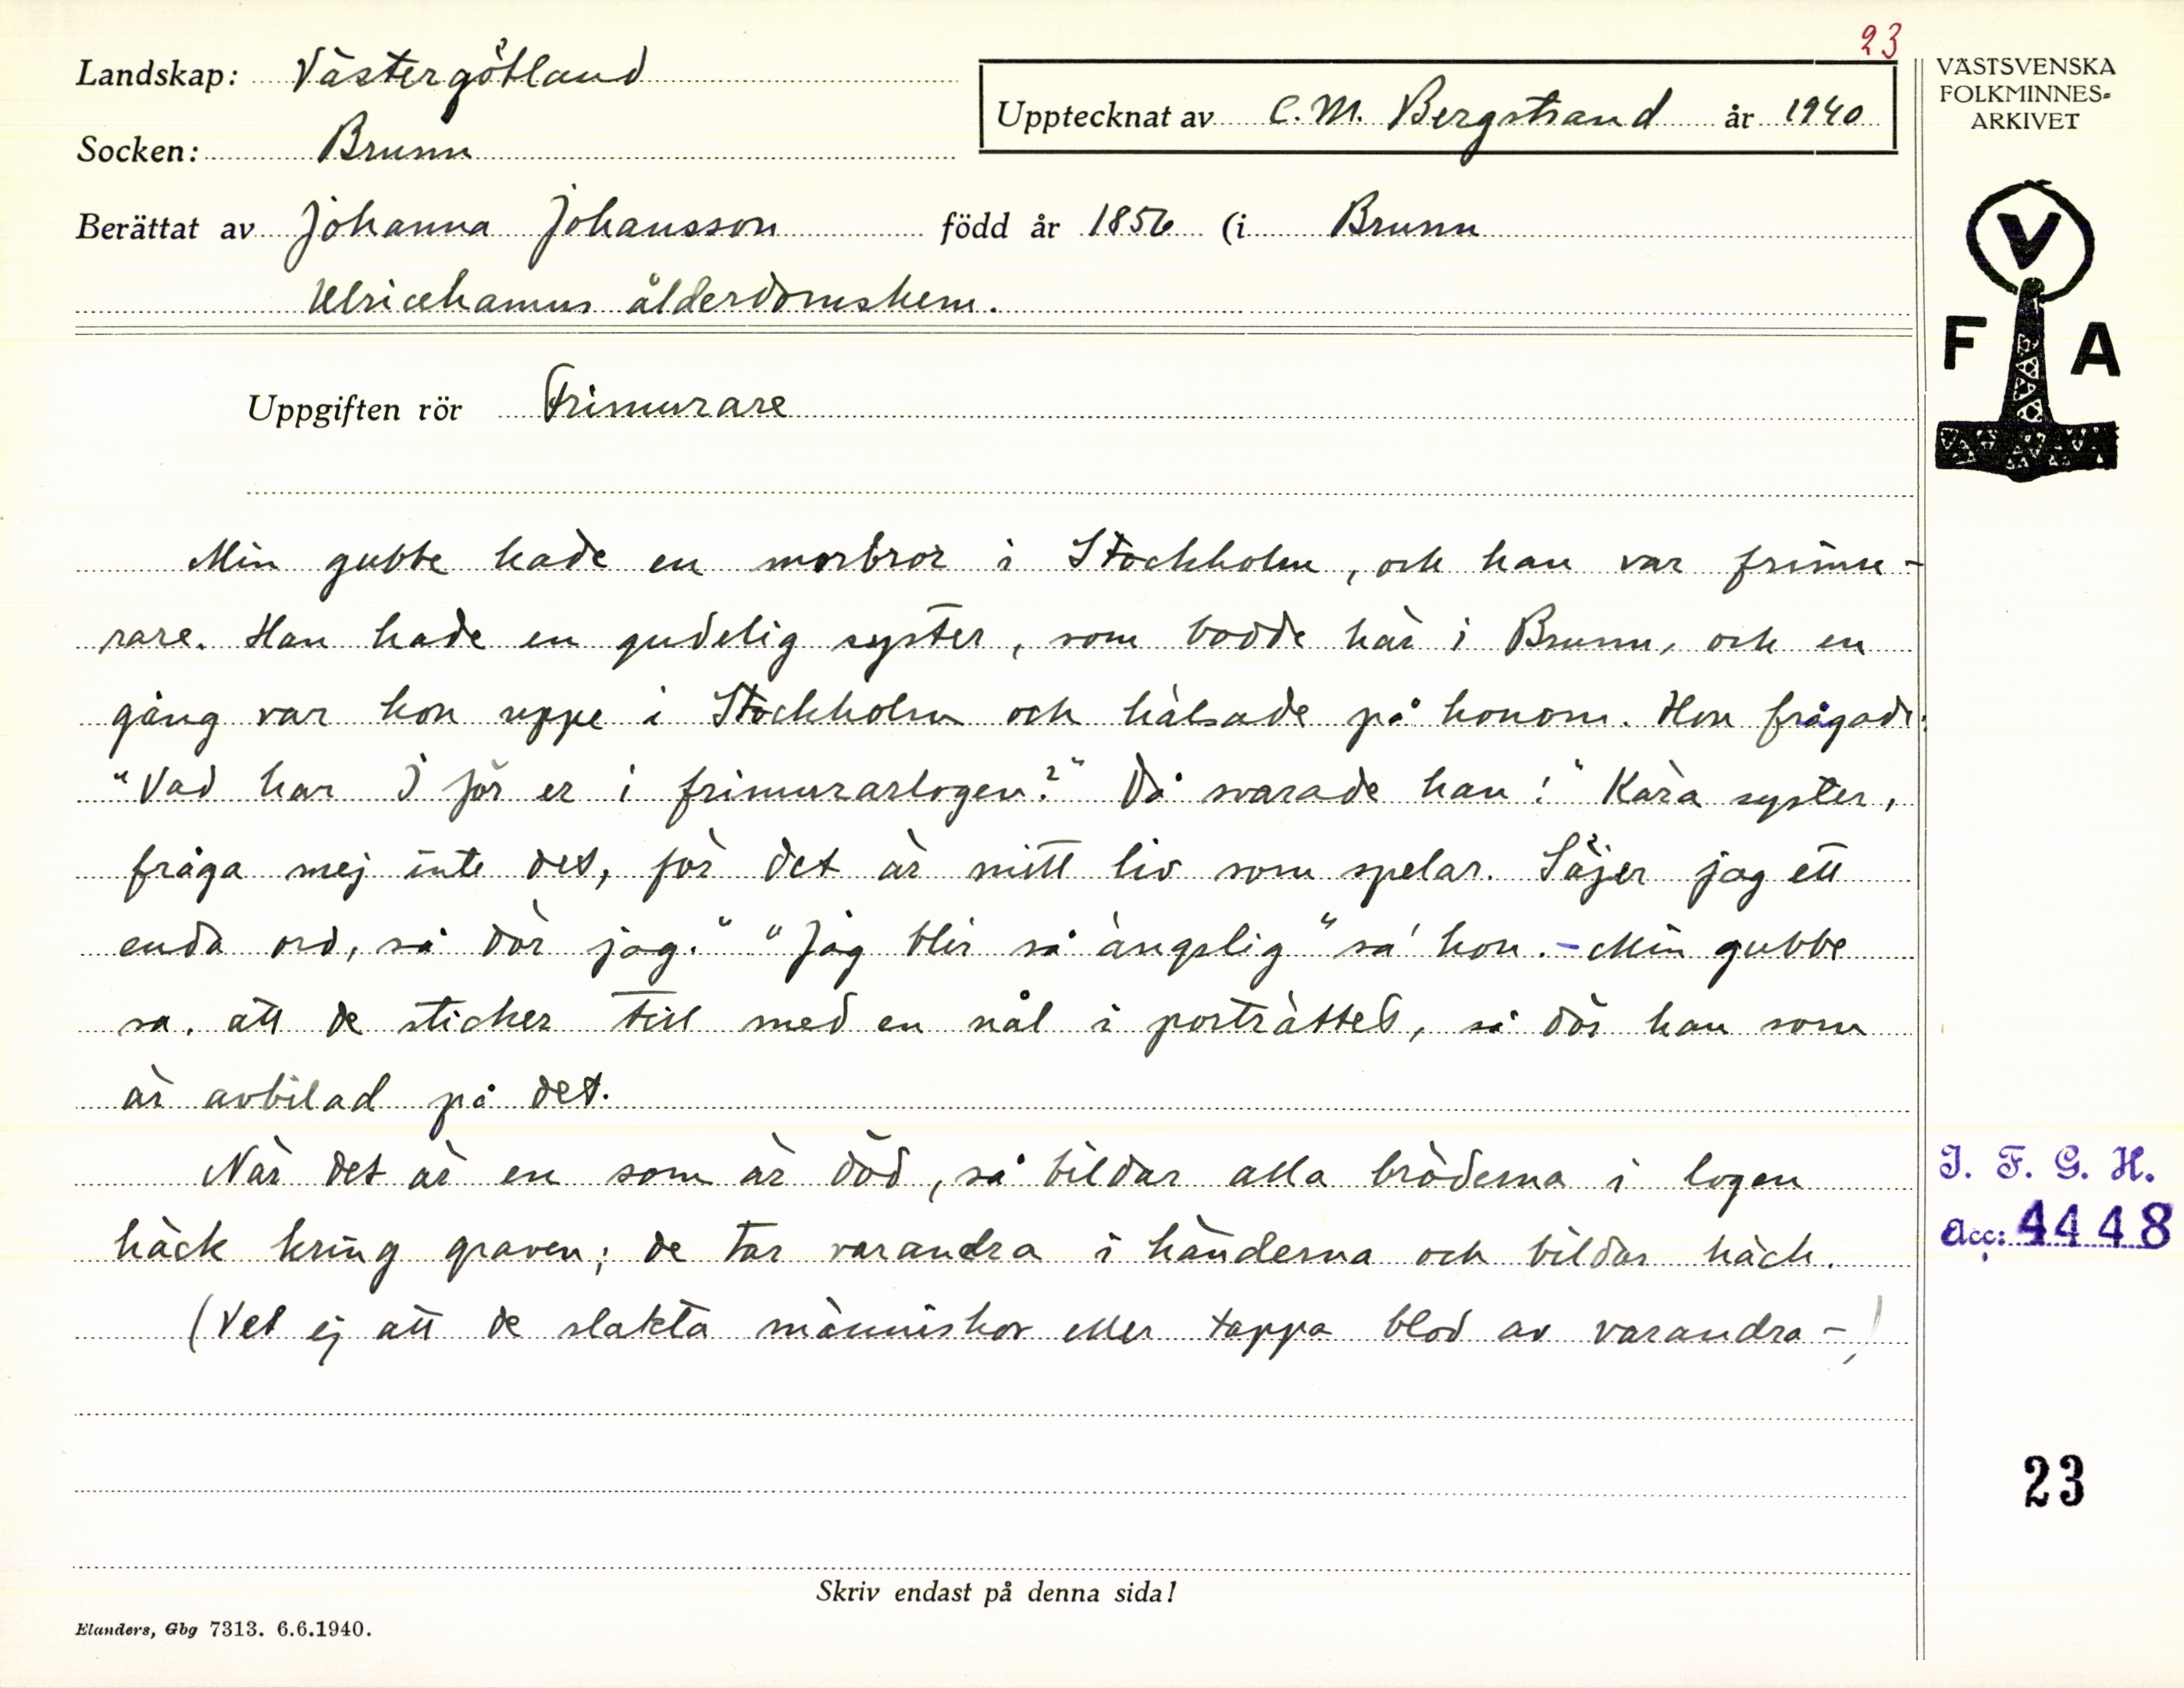 23
Landskap: Västergötland
Upptecknat av C. M. Bergstrand år 1940
Socken: Brunn
Berättat av Johanna Johansson född år 1856 (i Brunn
Ulricehamns ålderdomshem.
Uppgiften rör Frimurare
Min gubbe hade en morbror i Stockholm, och han var frimu-
rare. Han hade en gudelig syster, som bodde här i Brunn, och en
gång var hon uppe i Stockholm och hälsade på honom. Hon frågade:
"Vad har I för er i frimurarlogen?" Då svarade han: "Kära syster,
fråga mej inte det, för det är mitt liv som spelar. Säjer jag ett
enda ord, så dör jag." "Jag blir så ängslig" sa' hon. - Min gubbe
sa. att de sticker till med en nål i porträttet, så dör han som
är avbilad på det.
När det är en som är död, så bildar alla bröderna i logen
häck kring graven; de tar varandra i händerna och bildar häck.
(Vet ej att de slakta människor eller tappa blod av varandra -)
Skriv endast på denna sida!
Elanders, Gbg 7313. 6.6.1940.
VÄSTSVENSKA
FOLKMINNES-
ARKIVET
V
F A
I. F. G. H.
Acc: 4448
23